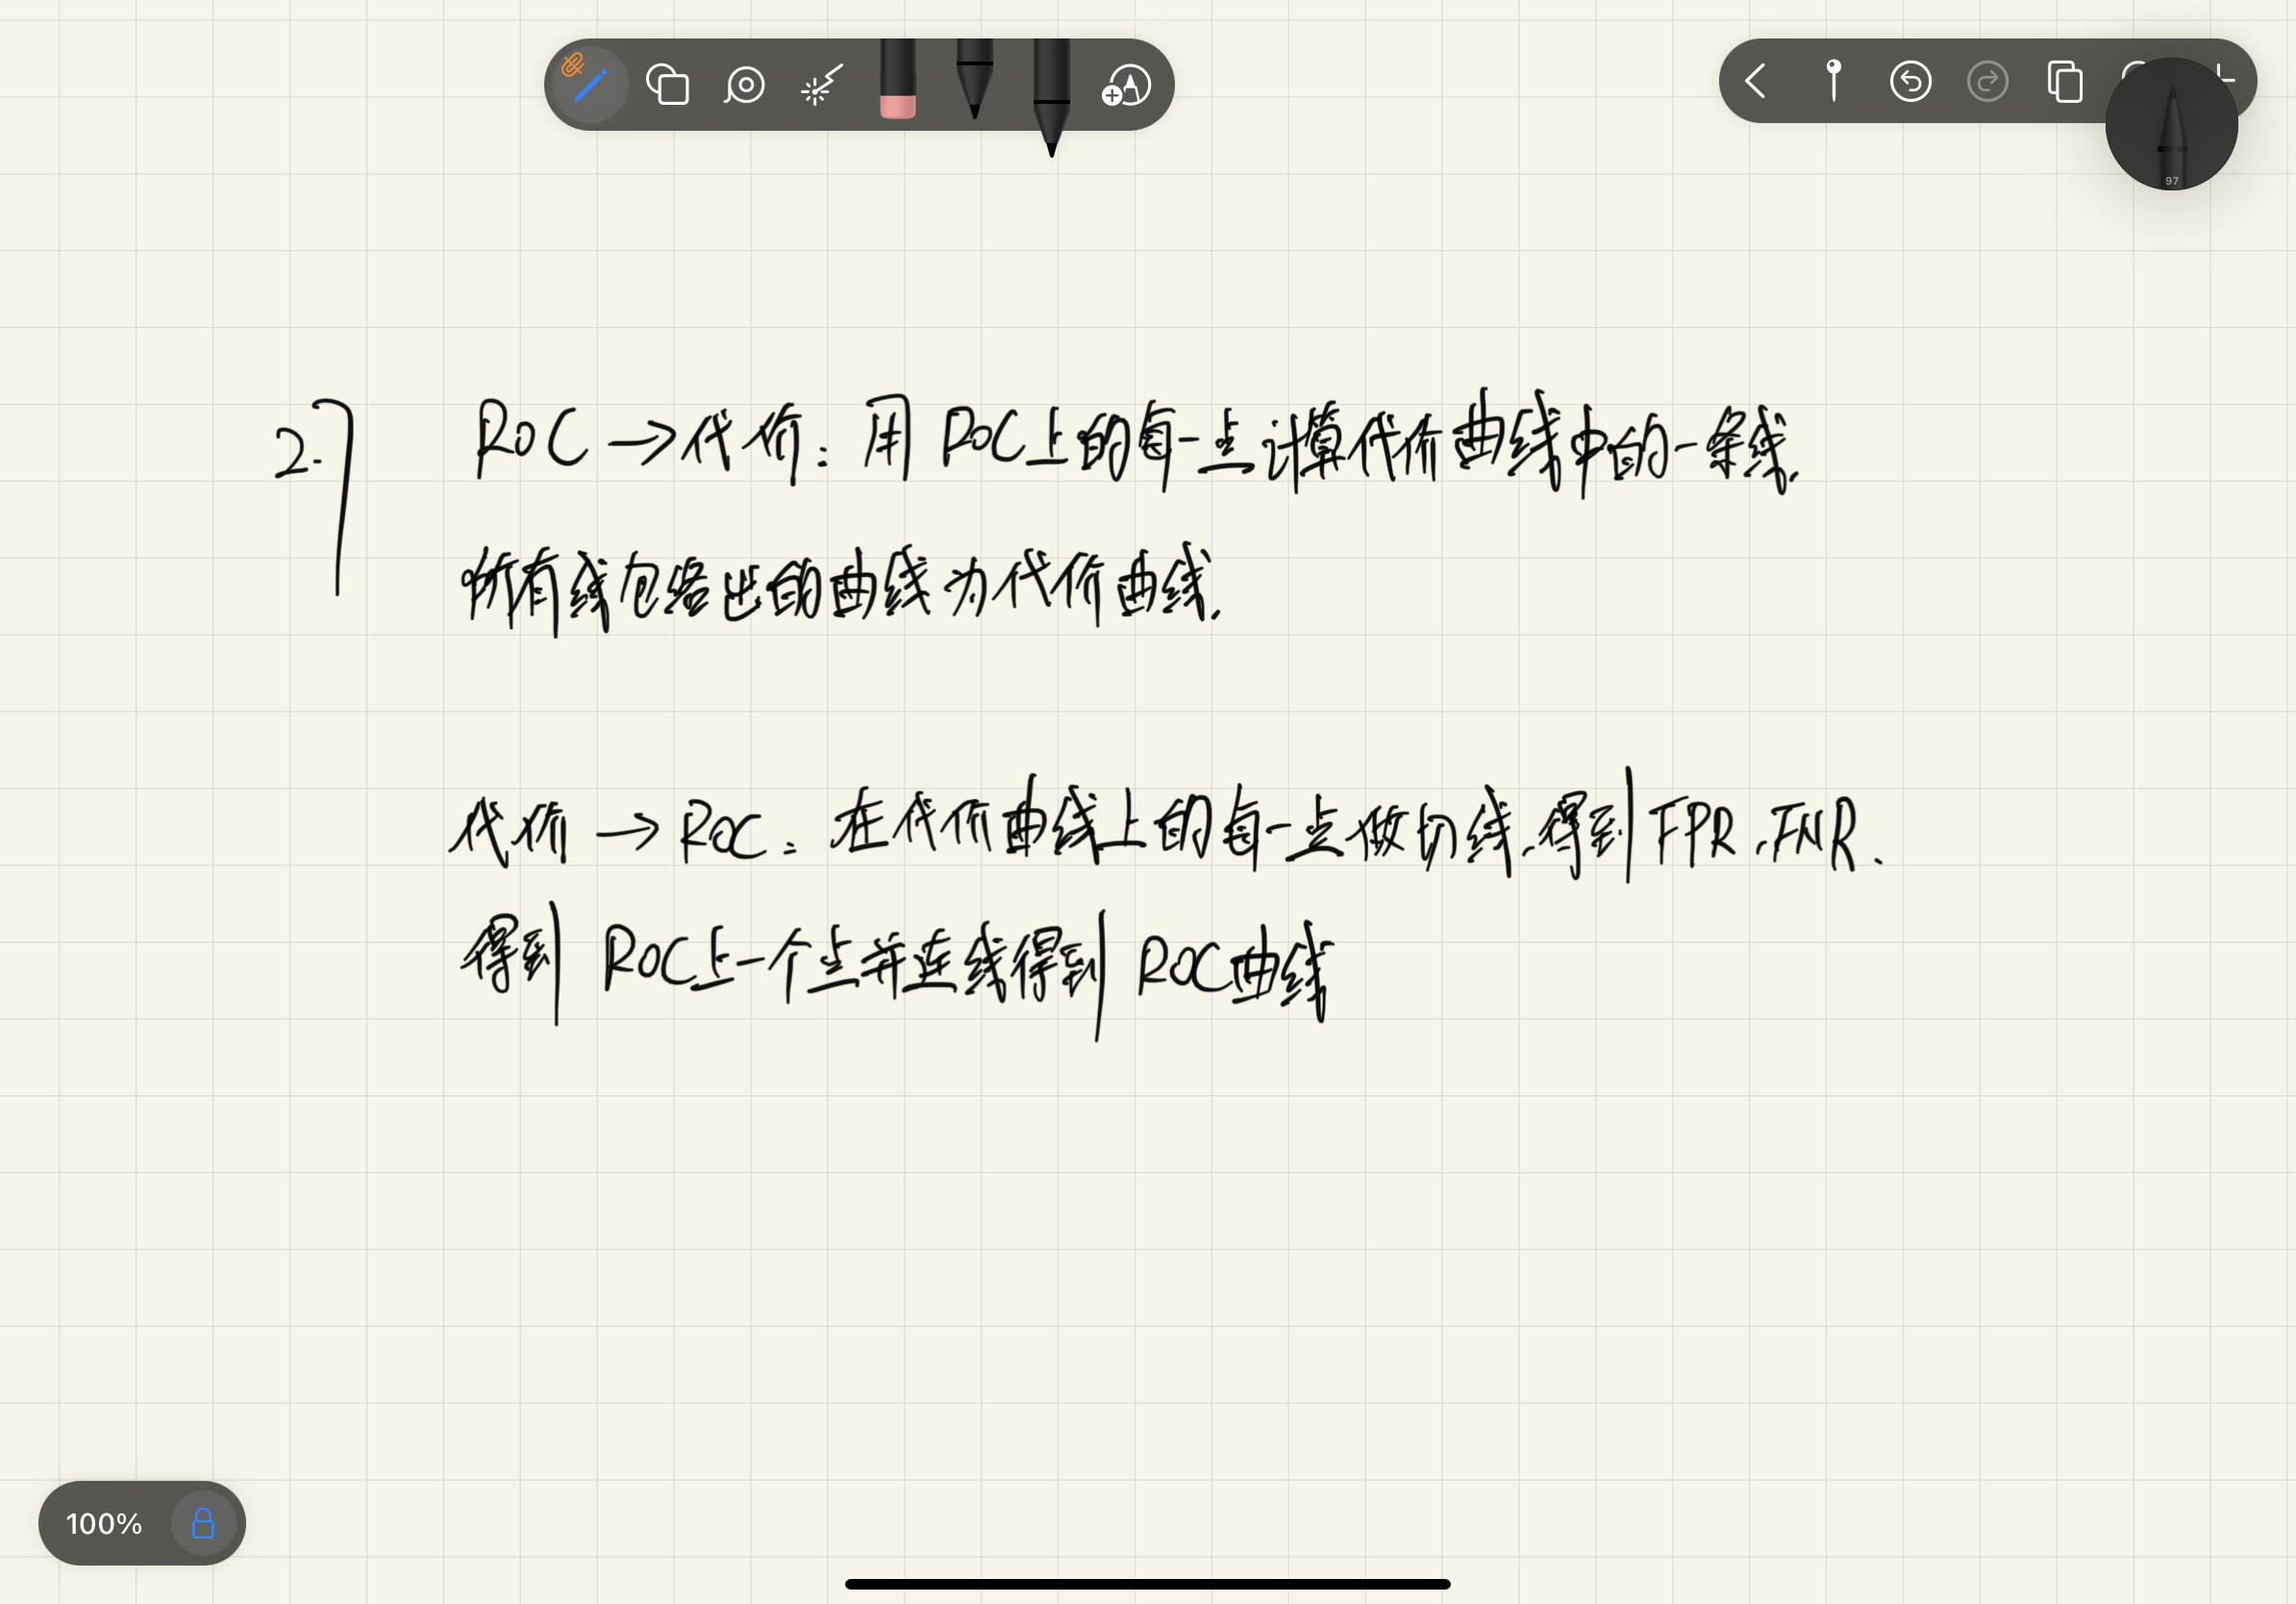 97
2.7 ROC→代价：用ROC上的每一点计算代价曲线中的一条线.
所有线包络出的曲线为代价曲线.
代价→ROC：在代价曲线上的每一点做切线.得到FPR.FNR.
得到ROC上一个点并连线得到ROC曲线
100%